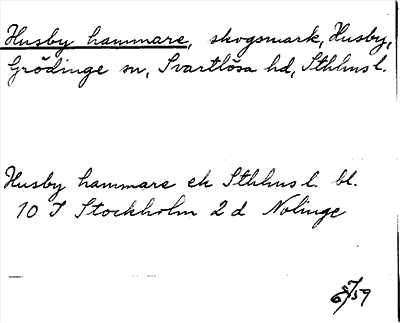 Husby hammare, skogsmark, Husby,
Grödinge sn, Svartlösa hd, Sthlms l.
Husby hammare ek Sthlms l. bl.
10 I Stockholm 2 d Nolinge